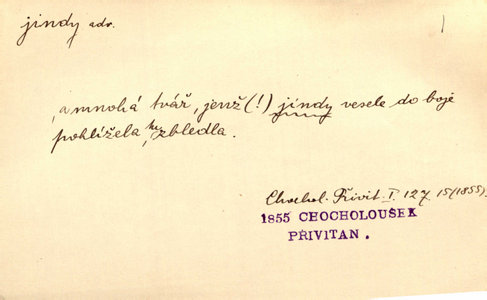 jindy adv.
, a mnohá tvář, jenž (!) jindy vesele do boje
pohlížela, zbledla.
Chochol. Přivit. I. 127 15 (1855).
1855 CHOCHOLOUŠEK
PŘIVITAN.